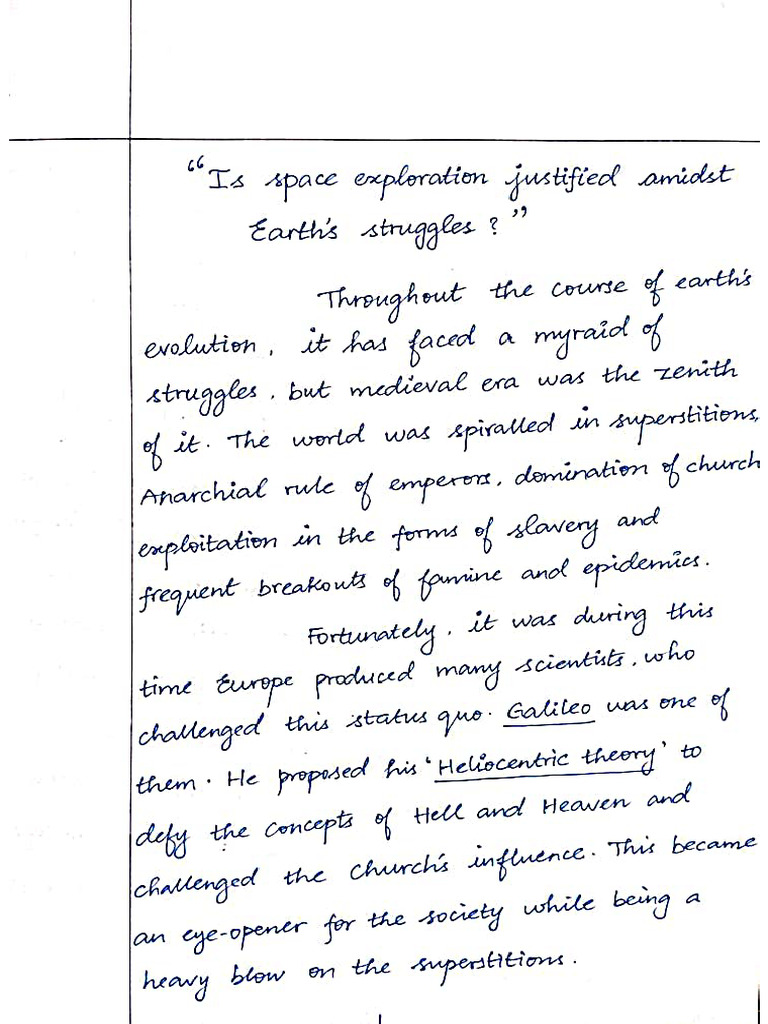 "Is space exploration justified amidst
Earth's struggles?"
Throughout the course of earth's
evolution, it has faced a myraid of
struggles, but medieval era was the zenith
of it. The world was spiralled in superstitions,
Anarchial rule of emperors, domination of church
exploitation in the forms of slavery and
frequent breakouts of famine and epidemics.
Fortunately, it was during this
time Europe produced many scientists, who
challenged this status quo. Galileo was one of
them. He proposed his 'Heliocentric theory' to
defy the concepts of Hell and Heaven and
challenged the Church's influence. This became
an eye-opener for the society while being a
heavy blow on the superstitions.